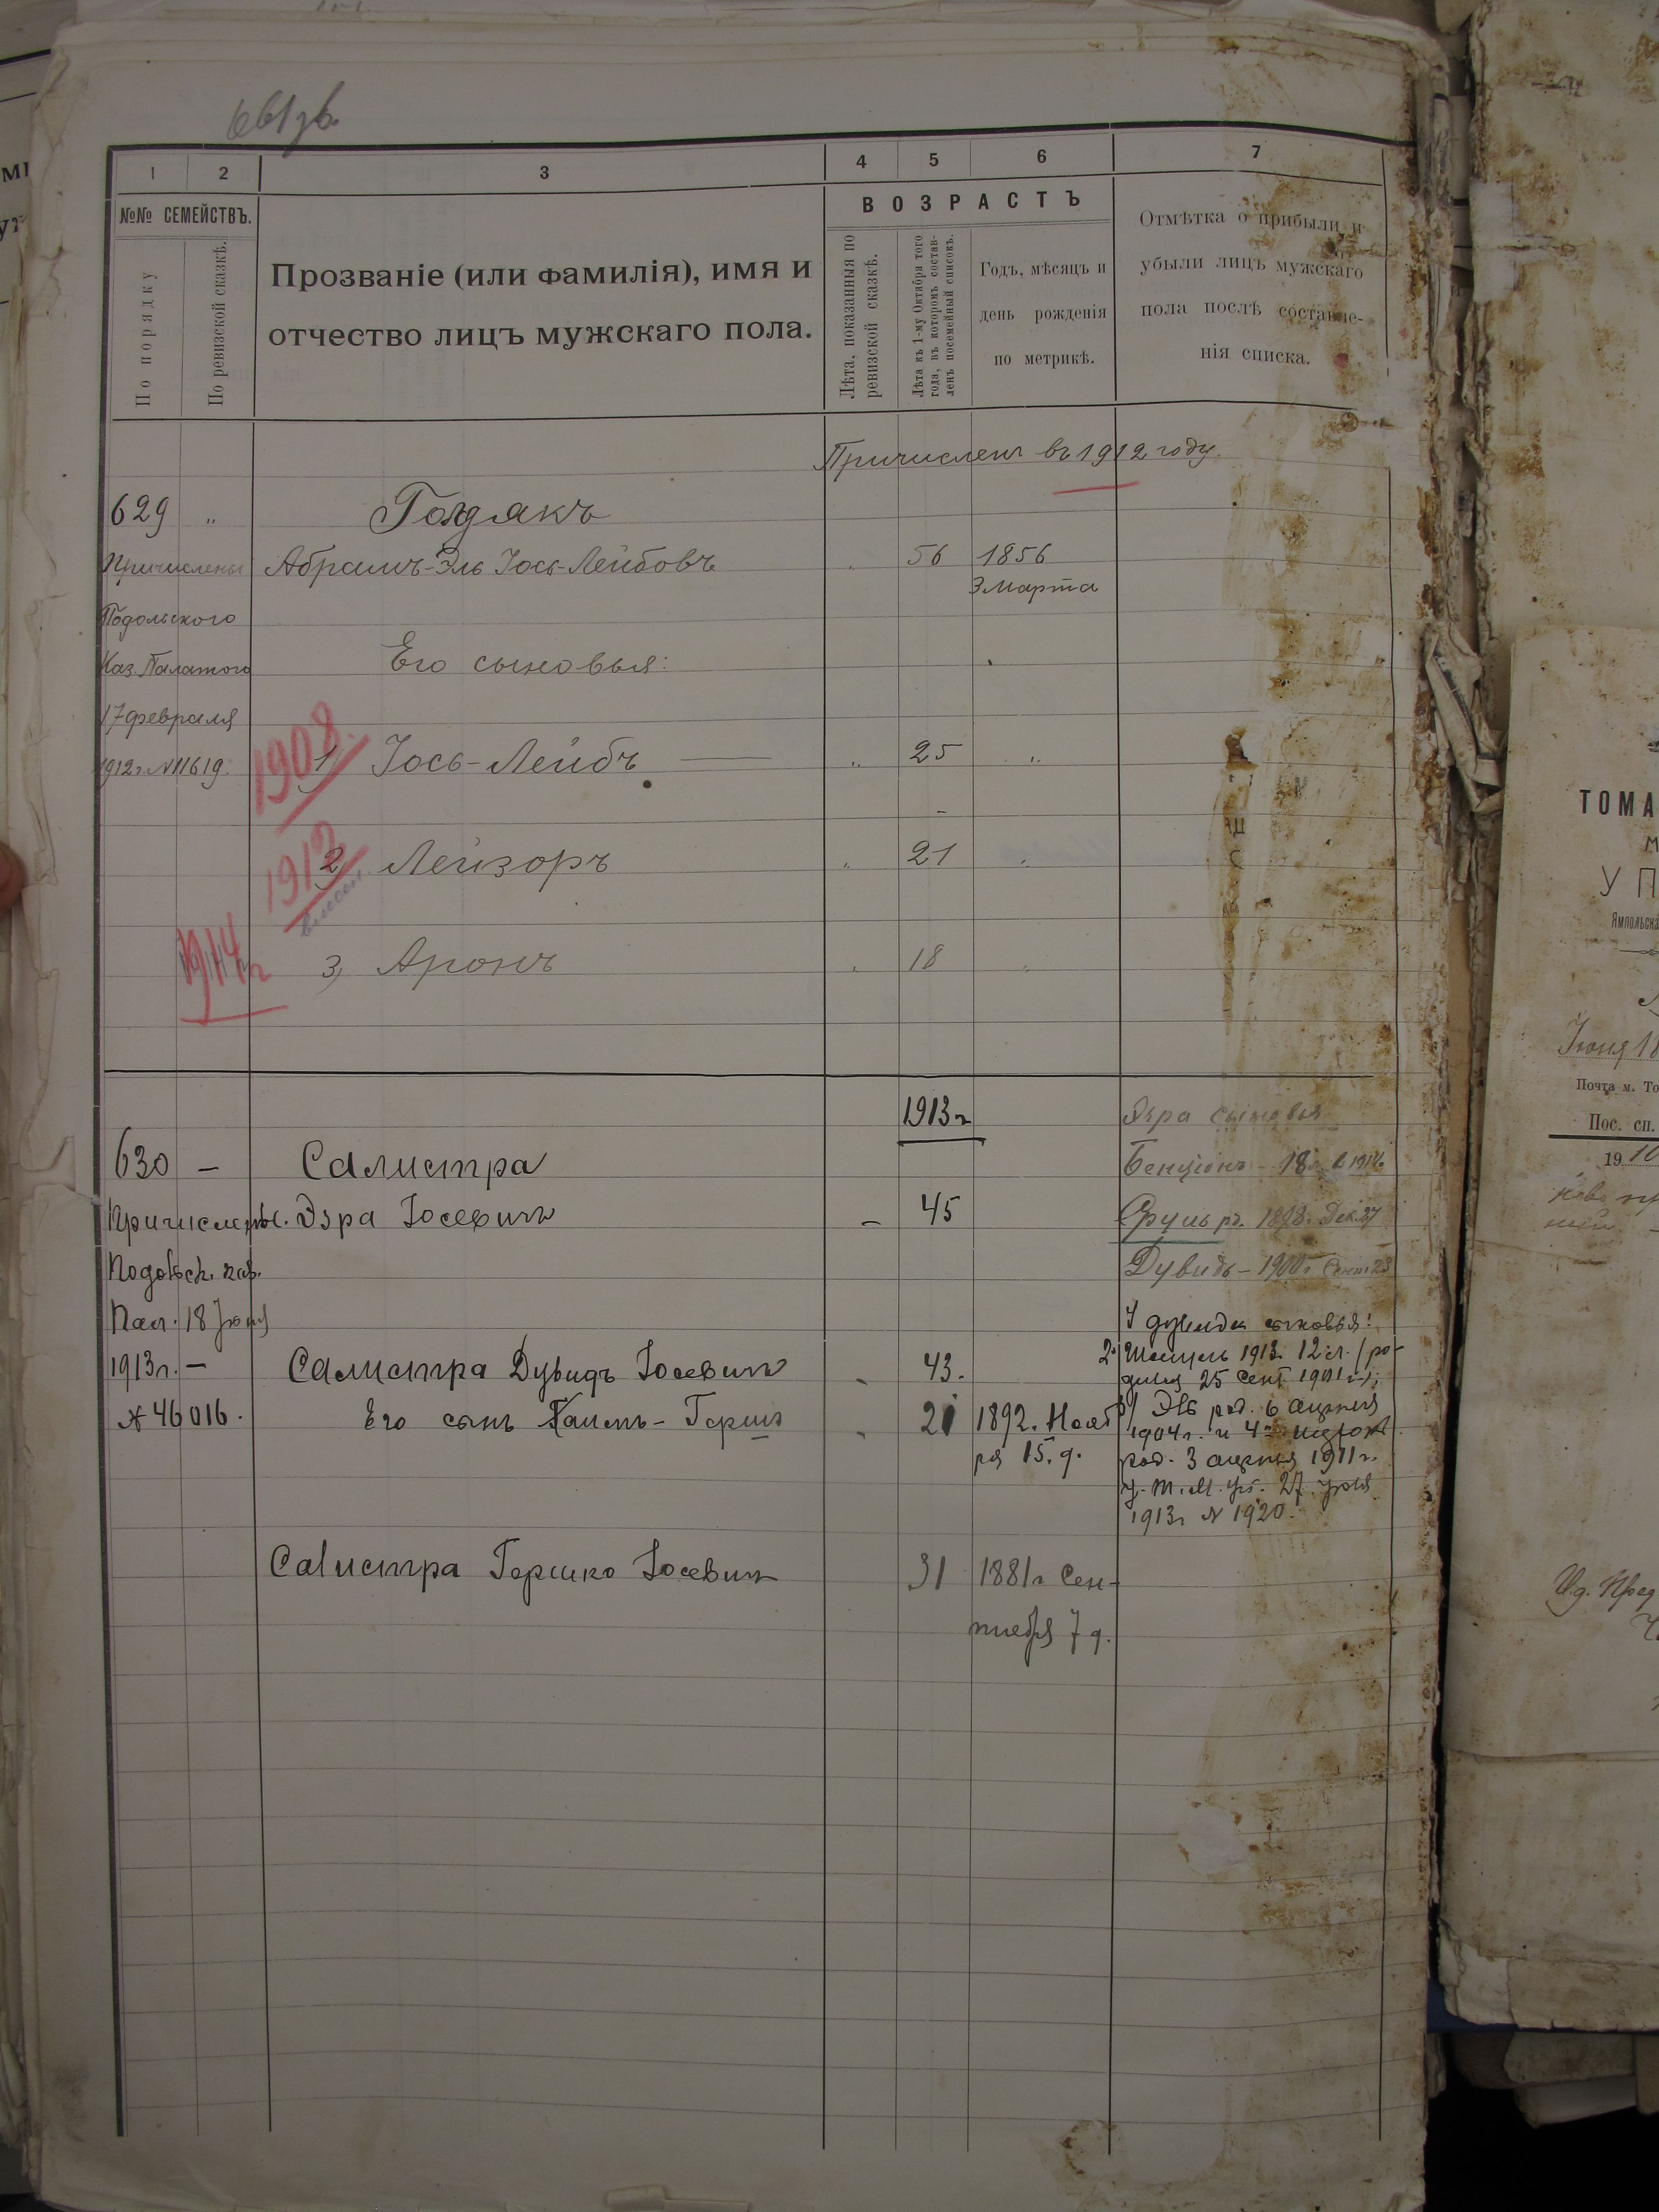 1 2 3 4 5 6 7
№№ СЕМЕЙСТВЪ.
По порядку
По ревизской сказкѣ.
Прозваніе (или фамилія), имя и
отчество лицъ мужскаго пола.
ВОЗРАСТЪ
Лѣта, показанныя по
ревизской сказкѣ.
Лѣта къ 1-му Октября того
года, въ которомъ состав-
ленъ посемейный списокъ.
Годъ, мѣсяцъ и
день рожденія
по метрикѣ.
Отмѣтка о прибыли и
убыли лицъ мужскаго
пола послѣ составле-
нія списка.
Причисленъ въ 1912 году
629 „ Голдякъ
Причислены Абрамъ-Эль Іось-Лейбовъ 56 1856
3 Марта
Подольского
Каз. Палатою Его сыновья:
17 февраля
1912 г. N 11619. 1908. 1) Іось-Лейбъ — „ 25 „
1912 2) Лейзоръ „ 21 „
1914 г 3) Аронъ „ 18 „
1913 г Эзра сыновья
630 — Салистра Бенціонъ - 18
Причислены. Эзра Іосевичъ — 45 Сруль р. 1898. Дек. 27
Подольск. каз. Дувидъ - 1900 г Сент 23
Пал. 18 Іюня У Дувида сыновья:
1913 г. — Салистра Дувидъ Іосевичъ „ 43. 2) 1913. 12 л. /ро-
дился 25 Сент 1901 г.);
№ 46016. Его сынъ Хаимъ-Гершъ „ 21 1892. Нояб 3) Эль род. 6 апреля
ря 15. д. 1904 г. и 4)
род. 3 апреля 1911 г.
27
1913 г N 1920.
Салистра Гершко Іосевичъ 31 1881 г Сен-
тября 7 д.
ТОМА
М
У П
Ямпольска
Іюня 18
Почта м. То
Пос. сп.
19 10
И.д. Пред